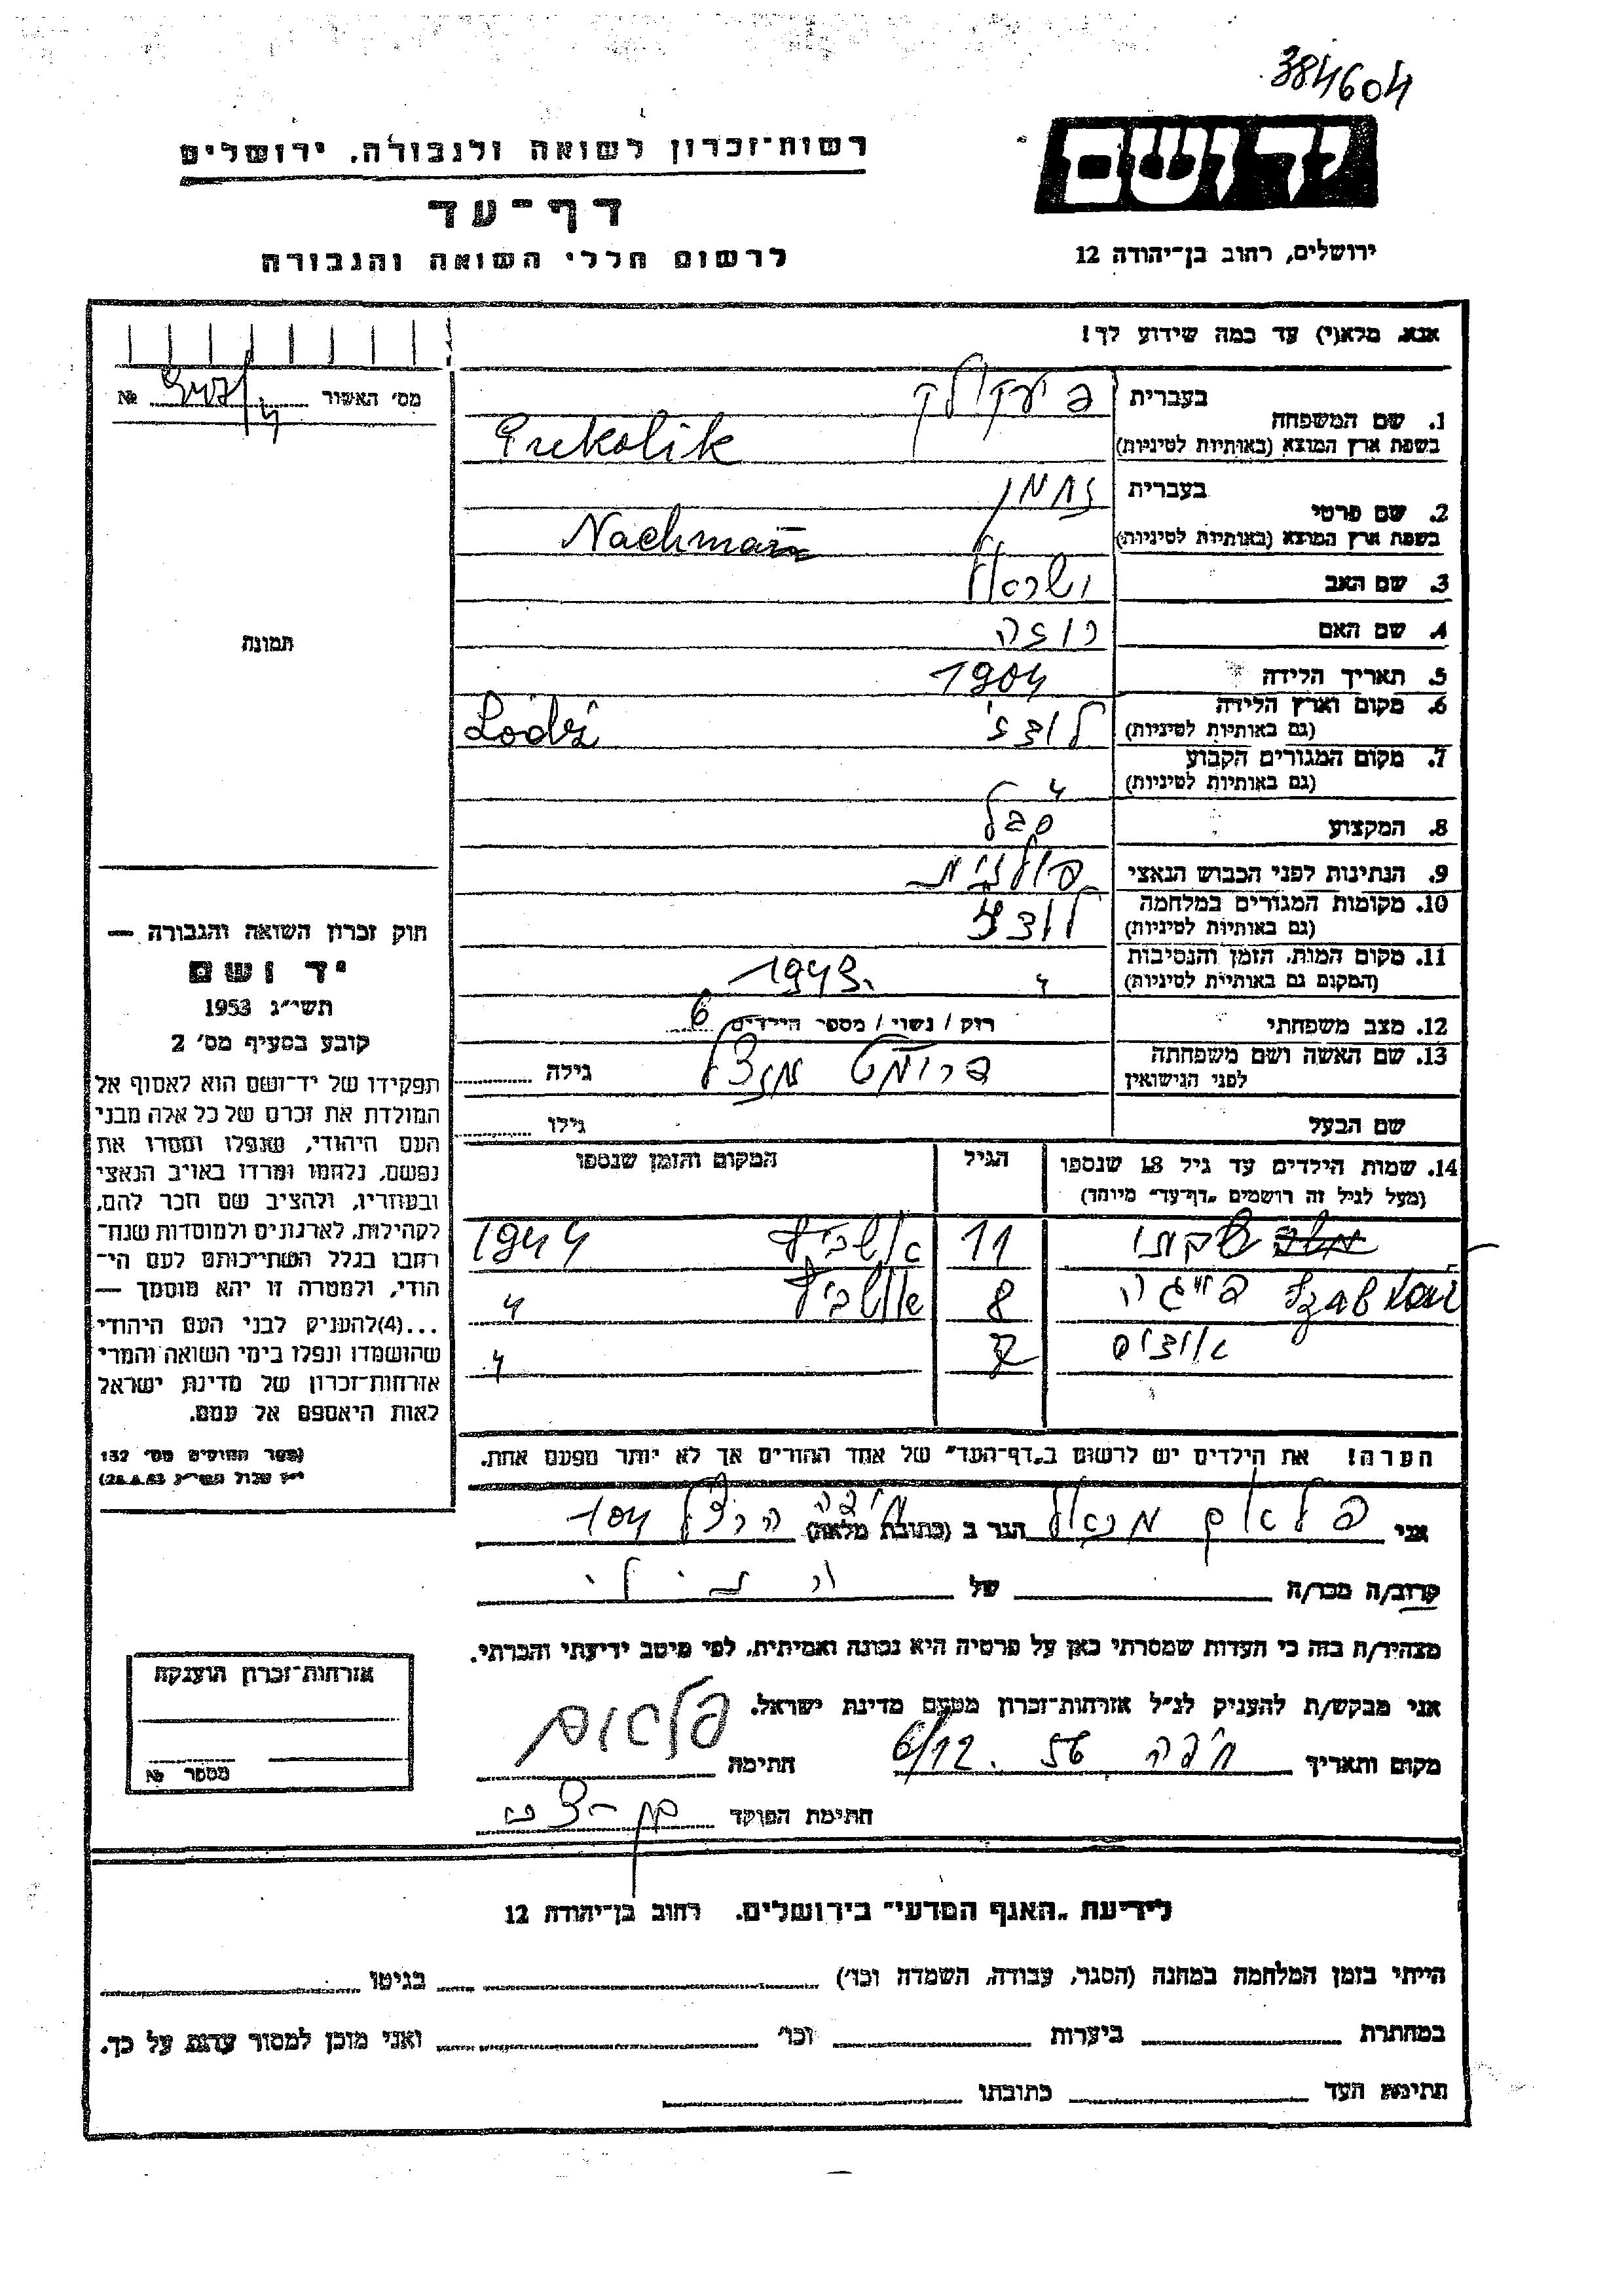 384604
רשות־זכרון לשואה ולגבורה, ירושלים
יד ושם
דף־עד
לרשום חללי השואה והגבורה
ירושלים, רחוב בן־יהודה 12
אנא, מלא(י) עד כמה שידוע לך!
מס׳ האשור № 
1. שם המשפחה
בעברית
בשפת ארץ המוצא (באותיות לטיניות)
2. שם פרטי
בעברית נחמן
בשפת ארץ המוצא (באותיות לטיניות) Nachman
3. שם האב ישראל
4. שם האם רוזה
5. תאריך הלידה 1904
6. מקום וארץ הלידה לודז׳ Lodź
(גם באותיות לטיניות)
7. מקום המגורים הקבוע "
(גם באותיות לטיניות)
8. המקצוע סבל
9. הנתינות לפני הכבוש הנאצי פולנית
10. מקומות המגורים במלחמה לודז׳
(גם באותיות לטיניות)
11. מקום המות, הזמן והנסיבות " 1943.
(המקום גם באותיות לטיניות)
12. מצב משפחתי רווק / נשוי / מספר הילדים 6
13. שם האשה ושם משפחתה
לפני הנישואין
גילה
שם הבעל גילו
14. שמות הילדים עד גיל 18 שנספו הגיל המקום והזמן שנספו
(מעל לגיל זה רושמים „דף־עד״ מיוחד)
11 1944
פייגה 8 "
"
הערה! את הילדים יש לרשום ב„דף־העד״ של אחד ההורים אך לא יותר מפעם אחת.
תמונה
חוק זכרון השואה והגבורה —
יד ושם
תשי״ג 1953
קובע בסעיף מס׳ 2
תפקידו של יד־ושם הוא לאסוף אל
המולדת את זכרם של כל אלה מבני
העם היהודי, שנפלו ומסרו את
נפשם, נלחמו ומרדו באויב הנאצי
ובעוזריו, ולהציב שם וזכר להם,
לקהילות, לארגונים ולמוסדות שנח־
רבו בגלל השתייכותם לעם הי־
הודי, ולמטרה זו יהא מוסמך —
...(4)להעניק לבני העם היהודי
שהושמדו ונפלו בימי השואה והמרי
אזרחות־זכרון של מדינת ישראל
לאות היאספם אל עמם.
(ספר החוקים מס׳ 132
י״ז אלול תשי״ג 28.8.53)
אני הגר ב (כתובת מלאה) חיפה הרצל 104
קרוב/ה מכר/ה של
מצהיר/ה בזה כי העדות שמסרתי כאן על פרטיה היא נכונה ואמיתית, לפי מיטב ידיעתי והכרתי.
אני מבקש/ת להעניק לנ״ל אזרחות־זכרון מטעם מדינת ישראל.
מקום ותאריך חיפה 6/12. 56 חתימה
חתימת הפוקד
אזרחות־זכרון הוענקה
מספר №
לידיעת „האגף המדעי״ בירושלים, רחוב בן־יהודה 12
הייתי בזמן המלחמה במחנה (הסגר, עבודה, השמדה וכו׳) בגיטו
במחתרת ביערות וכו׳ ואני מוכן למסור עדות על כך.
חתימת העד כתובתו